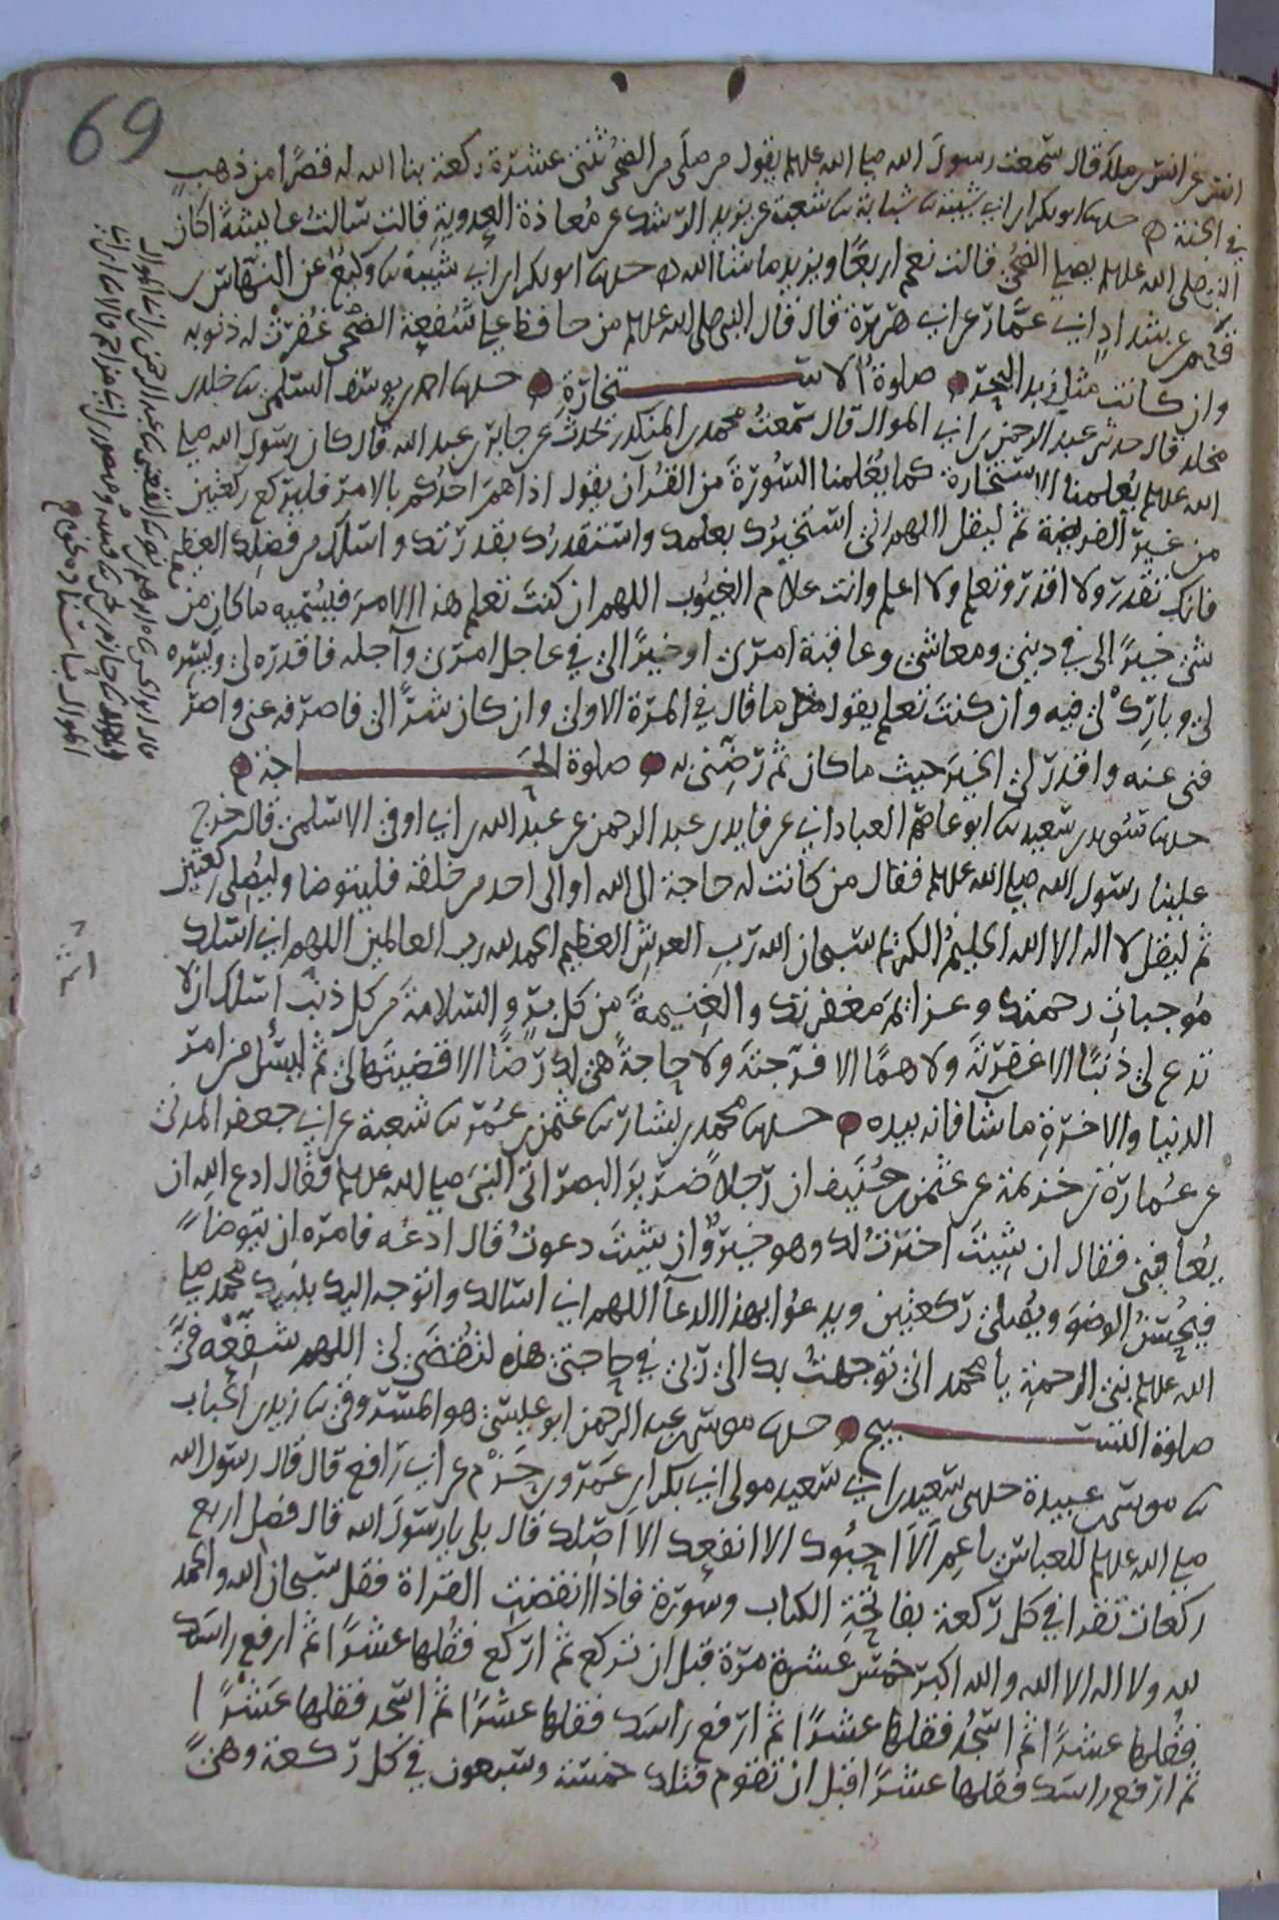 69
انس عن انس بن ملك قال سمعت رسول الله صلى الله علىه يقول من صلى من الضحى ثنتى عشرة ركعة بنا الله له قصرا من ذهب
في الجنة ٥ حدثنا ابو بكر ابن ابي شيبة ثنا شبابة ثنا شعبة عن يزيد الرشك عن معاذة العدوية قالت سالت عايشة اكان
النبي صلى الله عليه يصلي الضحى قالت نعم اربعا ويزيد ما شا الله ٥ حدثنا ابو بكر ابن ابي شيبة ثنا وكيع عن النهاس بن
قهم عن شداد ابي عمار عن ابي هريرة قال قال النبي صلى الله عليه من حافظ على شفعة الضحى غفرت له ذنوبه
وان كانت مثل زبد البحر ٥ صلوة الاستخارة ٥ حدثنا احمد بن يوسف السلمي ثنا خلد بن
مخلد قال حدثني عبد الرحمن بن ابي الموال قال سمعت محمد بن المنكدر يحدث عن جابر بن عبد الله قال كان رسول الله صلى
الله عليه يعلمنا الاستخارة كما يعلمنا السورة من القران يقول اذا هم احدكم بالامر فليركع ركعتين
من غير الفريضة ثم ليقل اللهم اني استخيرك بعلمك واستقدرك بقدرتك واسلك من فضلك العظيم
فانك تقدر ولا اقدر وتعلم ولا اعلم وانت علام الغيوب اللهم ان كنت تعلم هذا الامر فيسميه ما كان من
شئ خيرا لي في ديني ومعاشي وعاقبة امري او خيرا لي في عاجل امري وآجله فاقدره لي ويسره
لي وبارك لي فيه وان كنت تعلم يقول مثل ما قال في المرة الاولى وان كان شرا لي فاصرفه عني واصر
فني عنه واقدر لي الخير حيث ما كان ثم رضني به ٥ صلوة الحاجة ٥
حدثنا سويد بن سعيد ثنا ابو عاصم العباداني عن فايد بن عبد الرحمن عن عبد الله بن ابي اوفى الاسلمي قال خرج
علينا رسول الله صلى الله عليه فقال من كانت له حاجة الى الله او الى احد من خلقه فليتوضا وليصلي ركعتين
ثم ليقل لا اله الا الله الحليم الكريم سبحان الله رب العرش العظيم الحمد لله رب العالمين اللهم اني اسلك
موجبات رحمتك وعزائم مغفرتك والغنيمة من كل بر والسلامة من كل ذنب اسلك ان لا
تدع لي ذنبا الا غفرته ولا هما الا فرجته ولا حاجة هي لك رضا الا قضيتها لي ثم ليسل من امر
الدنيا والاخرة ما شا فانه بيده ٥ حدثنا محمد بن بشار ثنا عثمن بن عمر ثنا شعبة عن ابي جعفر المدني
عن عمارة بن خزيمة عن عثمن بن حنيف ان رجلا ضرير البصر اتى النبي صلى الله عليه فقال ادع الله ان
يعافيني فقال ان شيت اخرت لك وهو خير وان شيت دعوت قال ادعه فامره ان يتوضا
فيحسن الوضو ويصلي ركعتين ويدعوا بهذا الدعآ اللهم اني اسالك واتوجه اليك بنبيك محمد صلى
الله عليه نبي الرحمة يا محمد اني توجهت بك الى ربي في حاجتي هذه لتقضى لي اللهم شفعه في
صلوة التسبيح ٥ حدثنا موسى بن عبد الرحمن ابو عيسى هو المسروقي ثنا زيد بن الحباب
ثنا موسى بن عبيدة حدثني سعيد بن ابي سعيد مولى ابي بكر ابن عمرو بن حزم عن ابي رافع قال قال رسول الله
صلى الله عليه للعباس يا عم الا احبوك الا انفعك الا اصلك قال بلى يا رسول الله قال فصل اربع
ركعات تقرا في كل ركعة بفاتحة الكتاب وسورة فاذا انقضت القراة فقل سبحان الله والحمد
لله ولا اله الا الله والله اكبر خمس عشرة مرة قبل ان تركع ثم اركع فقلها عشرا ثم ارفع راسك
فقلها عشرا ثم اسجد فقلها عشرا ثم ارفع راسك فقلها عشرا ثم اسجد فقلها عشرا
ثم ارفع راسك فقلها عشرا قبل ان تقوم فتلك خمسة وسبعون في كل ركعة وهي